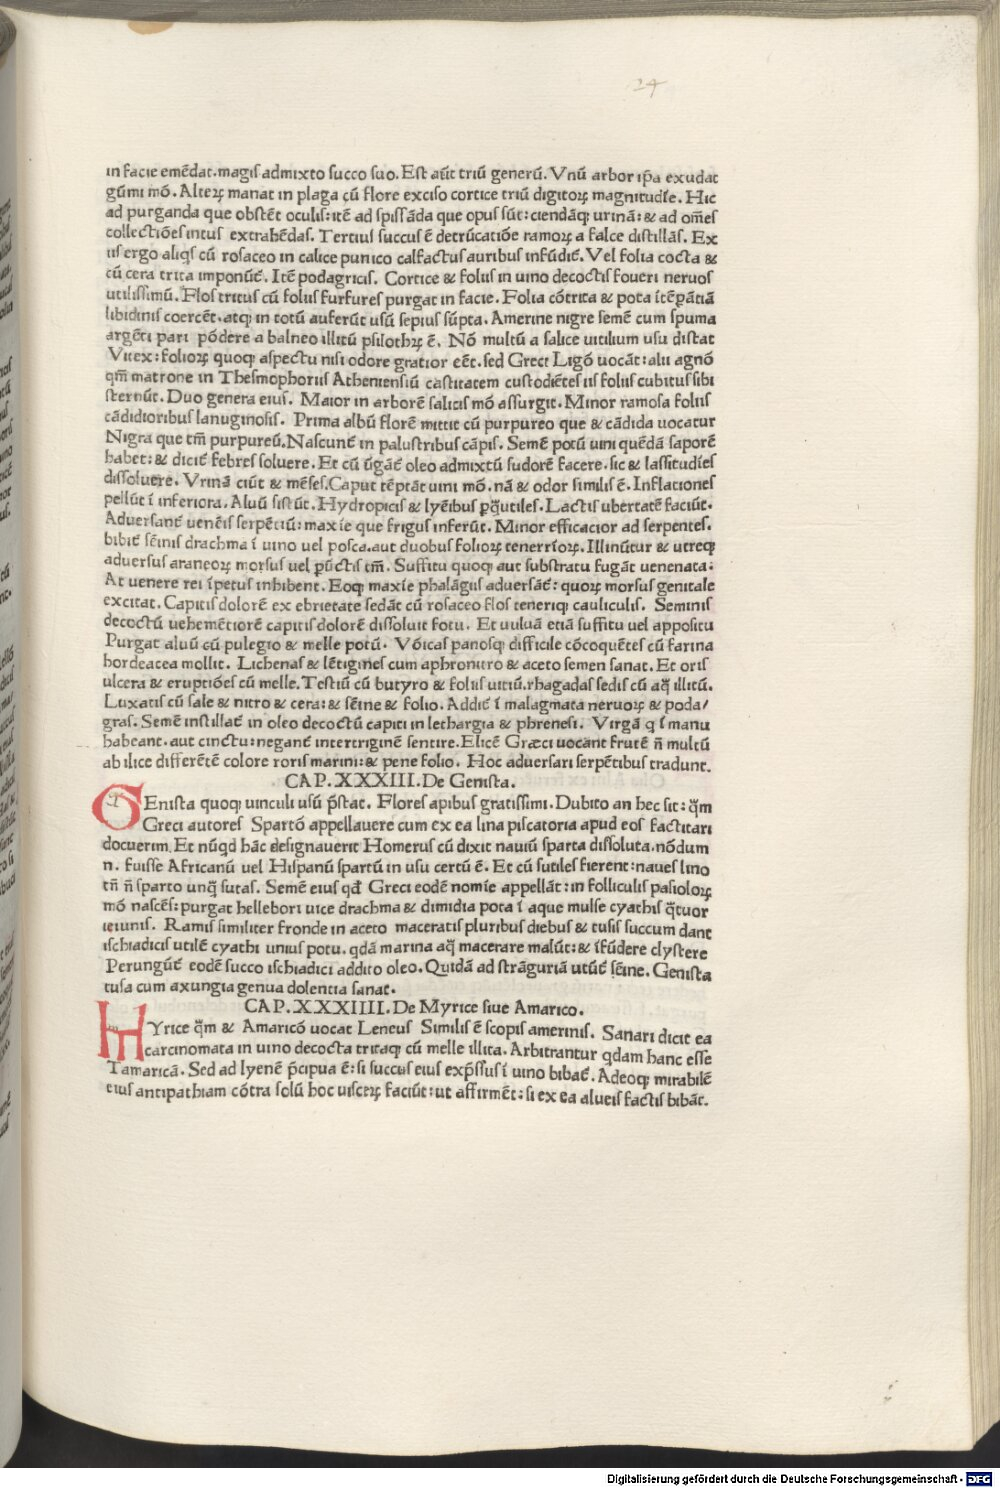 24
in facie emēdat. magis admixto succo suo. Est aūt triū generū. Vnū arbor ip̄a exudat
gūmi mō. Alteꝝ manat in plaga cū flore exciso cortice triū digitoꝝ magnitudīe. Hic
ad purganda que obstēt oculis: itē ad spissāda que opus sūt: ciendāqꝫ urinā: & ad om̄es
collectiōes intus extrahēdas. Tertius succus ē detrūcatiōe ramoꝝ a falce distillās. Ex
iis ergo aliq̄s cū rosaceo in calice punico calfactus auribus infūdit᷑. Vel folia cocta &
cū cera trita imponūt᷑. Itē podagricis. Cortice & foliis in uino decoctis foueri neruos
utilissimū. Flos tritus cū foliis furfures purgat in facie. Folia cōtrita & pota ītēp̄ātiā
libidinis coercēt. atqꝫ in totū auferūt usū sepius sūpta. Amerine nigre semē cum spuma
argēti pari pōdere a balneo illitū psilothꝝ ē. Nō multū a salice uitilium usu distat
Vitex: folioꝝ quoqꝫ aspectu nisi odore gratior eēt. sed Greci Ligō uocāt: alii agnō
qm̄ matrone in Thesmophoriis Atheniensiū castitatem custodiētes iis foliis cubitus sibi
sternūt. Duo genera eius. Maior in arborē salicis mō assurgit. Minor ramosa foliis
cādidioribus lanuginosis. Prima albū florē mittit cū purpureo que & cādida uocatur
Nigra que tm̄ purpureū. Nascunt᷑ in palustribus cāpis. Semē potū uini quēdā saporē
habet: & dicit᷑ febres soluere. Et cū ūgāt᷑ oleo admixtū sudorē facere. sic & lassitudīes
dissoluere. Vrinā ciūt & mēses. Caput tēptāt uini mō. nā & odor similis ē. Inflationes
pellūt ī inferiora. Aluū sistūt. Hydropicis & lyēibus pq̄utiles. Lactis ubertatē faciūt.
Aduersant᷑ uenēis serpētiū: maxīe que frigus inferūt. Minor efficacior ad serpentes.
bibit᷑ sēinis drachma ī uino uel posca. aut duobus folioꝝ tenerrīoꝝ. Illinūtur & utreqꝫ
aduersus araneoꝝ morsus uel pūctis tm̄. Suffitu quoqꝫ aut substratu fugāt uenenata:
At uenere rei īpetus inhibent. Eoqꝫ maxīe phalāgiis aduersāt᷑: quoꝝ morsus genitale
excitat. Capitis dolorē ex ebrietate sedāt cū rosaceo flos teneriqꝫ cauliculis. Seminis
decoctū uehemētiorē capitis dolorē dissoluit fotu. Et uuluā etiā suffitu uel appositu
Purgat aluū cū pulegio & melle potū. Vōicas panosqꝫ difficile cōcoquētes cū farina
hordeacea mollit. Lichenas & lētigines cum aphronitro & aceto semen sanat. Et oris
ulcera & eruptiōes cū melle. Testiū cū butyro & foliis uitiū. rhagadas sedis cū aq̄ illitū.
Luxatis cū sale & nitro & cera: & sēine & folio. Addit᷑ ī malagmata neruoꝝ & poda/
gras. Semē instillat᷑ in oleo decoctū capiti in lethargia & phrenesi. Virgā q ī manu
habeant. aut cinctu: negant intertriginē sentire. Elicē Græci uocant frutē n̄ multū
ab ilice differētē colore roris marini: & pene folio. Hoc aduersari serpētibus tradunt.
CAP. XXXIII. De Genista.
GEnista quoqꝫ uinculi usū p̄stat. Flores apibus gratissimi. Dubito an hec sit: q̄m
Greci autores Spartō appellauere cum ex ea lina piscatoria apud eos factitari
docuerim. Et nūq̄d hāc designauerit Homerus cū dixit nauiū sparta dissoluta. nōdum
n. fuisse Africanū uel Hispanū spartū in usu certū ē. Et cū sutiles fierent: naues lino
tn̄ n̄ sparto unq̄ sutas. Semē eius qd̄ Greci eodē nomīe appellāt: in folliculis pasioloꝝ
mō nascēs: purgat hellebori uice drachma & dimidia pota ī aque mulse cyathis q̄tuor
ieiunis. Ramis similiter fronde in aceto maceratis pluribus diebus & tusis succum dant
ischiadicis utilē cyathi unius potu. qdā marina aq̄ macerare malūt: & īfūdere clystere
Perungūt᷑ eodē succo ischiadici addito oleo. Quidā ad strāguriā utūt᷑ sēine. Genista
tusa cum axungia genua dolentia sanat.
CAP. XXXIIII. De Myrice siue Amarico.
MYrice q̄m & Amaricō uocat Leneus Similis ē scopis amerinis. Sanari dicit ea
carcinomata in uino decocta tritaqꝫ cū melle illita. Arbitrantur qdam hanc esse
Tamaricā. Sed ad lyenē p̄cipua ē: si succus eius exp̄ssus ī uino bibat᷑. Adeoqꝫ mirabilē
eius antipathiam cōtra solū hoc uisceꝝ faciūt: ut affirmēt: si ex ea alueis factis bibāt.
Digitalisierung gefördert durch die Deutsche Forschungsgemeinschaft - DFG